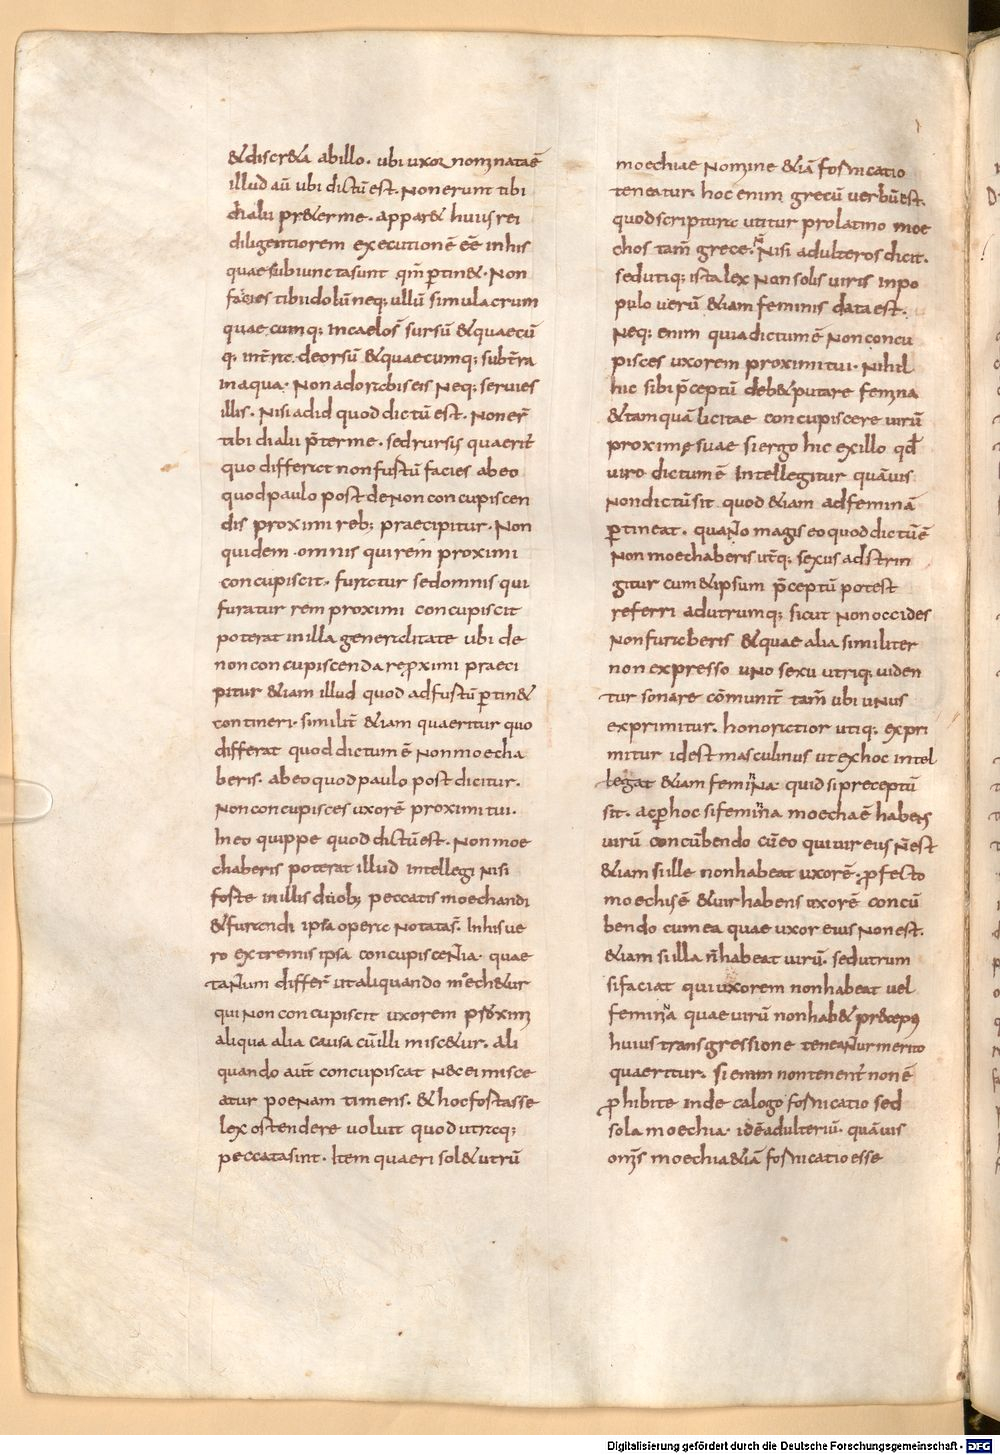 &discr&a abillo. ubi uxor nominataē
illud aū ubi dictū est. Non erunt tibi
dialii pr&erme. appar& huius rei
diligentiorem executionē eēē inhis
quae subiuncta sunt qm̄ ptin&. Non
facies tibi idolū neq; ullū simulacrum
quaecumq; in caelos̄ sursū & quaecū
q; int̄ra deorsū & quaecumq; subt̄ra
in aqua. Non adorabis eis Neq; servies
illis. Nisi ad id quod dictū est. Non er̄
tibi dialii p̄terme. sed rursus quaerit̄
quo differat non fustū facies ab eo
quod paulo post de Non concupiscen
dis proximi reb; praecipitur. Non
quidem omnis qui rem proximi
concupiscit. furatur sed omnis qui
furatur rem proximi concupiscit
poterat in illa generalitate ubi de
non concupiscenda re proximi praeci
pitur &iam illud quod ad fustū ptin&
contineri. similit̄ &iam quaeritur quo
differat quod dictum ē Non moecha
beris. ab eo quod paulo post dicitur.
Non concupisces uxorē proximi tui.
In eo quippe quod dictū est. Non moe
chaberis poterat illud intellegi Nisi
forte in illis duob; peccatis moechandi
& furandi ipsa opera notatas̄. In his ue
ro extremis ipsa concupiscentia. quae
tantum differ̄ ut aliquando moech&ur
qui Non concupiscit uxorem proximi
aliqua alia causa cū illi misc&ur. ali
quando aut̄ concupiscat Nec ei misce
atur poenam timens. & hoc fortasse
lex ostendere uoluit quod utraq;
peccata sint. Item quaeri sol& utrū
moechiae Nomine &iā fornicatio
teneatur. hoc enim grecū uerbū est.
quod scriptura utitur pro latino moe
chos tam̄ grece Nisi adulteros dicit.
sed utiq; ista lex Non solis uiris in po
pulo uerū &iam feminis data est.
Neq; enim quia dictum ē Non concu
pisces uxorem proximi tui. Nihil
hic sibi p̄ceptū deb& putare femina
& tamquā licitae concupiscere uirū
proximę suae si ergo hic ex illo qd̄
uiro dictum ē Intellegitur quāuis
Non dictū sit quod &iam ad feminā
ptineat. quanto magis eo quod dictū ē
Non moechaberis utq; sexus adstrin
gitur cum & ipsum p̄ceptū potest
referri ad utrumq; sicut Non occides
Non furaberis & quae alia similiter
non expresso uno sexu utriq; uiden
tur sonare cōmunit̄ tam̄ ubi unus
exprimitur. honoratior utiq; expri
mitur id est masculinus ut ex hoc intel
legat &iam femina quid si preceptū
sit. ac p hoc si femina moecha ē habens
uirū concūbendo cū eo qui uir eius n̄ est
&iam si ille non habeat uxorē. pfecto
moechis ē & uir habens uxorē concū
bendo cum ea quae uxor eius Non est.
&iam si illa n̄ habeat uirū. sed utrum
si faciat qui uxorem non habeat uel
femina quae uirū non hab&
huius transgressione teneantur merito
quaeritur. si enim non tenent̄ non ē
phibita in decalogo fornicatio sed
sola moechia. id ē adulteriū. quāuis
omīs moechia &iā fornicatio esse
Digitalisierung gefördert durch die Deutsche Forschungsgemeinschaft - DFG